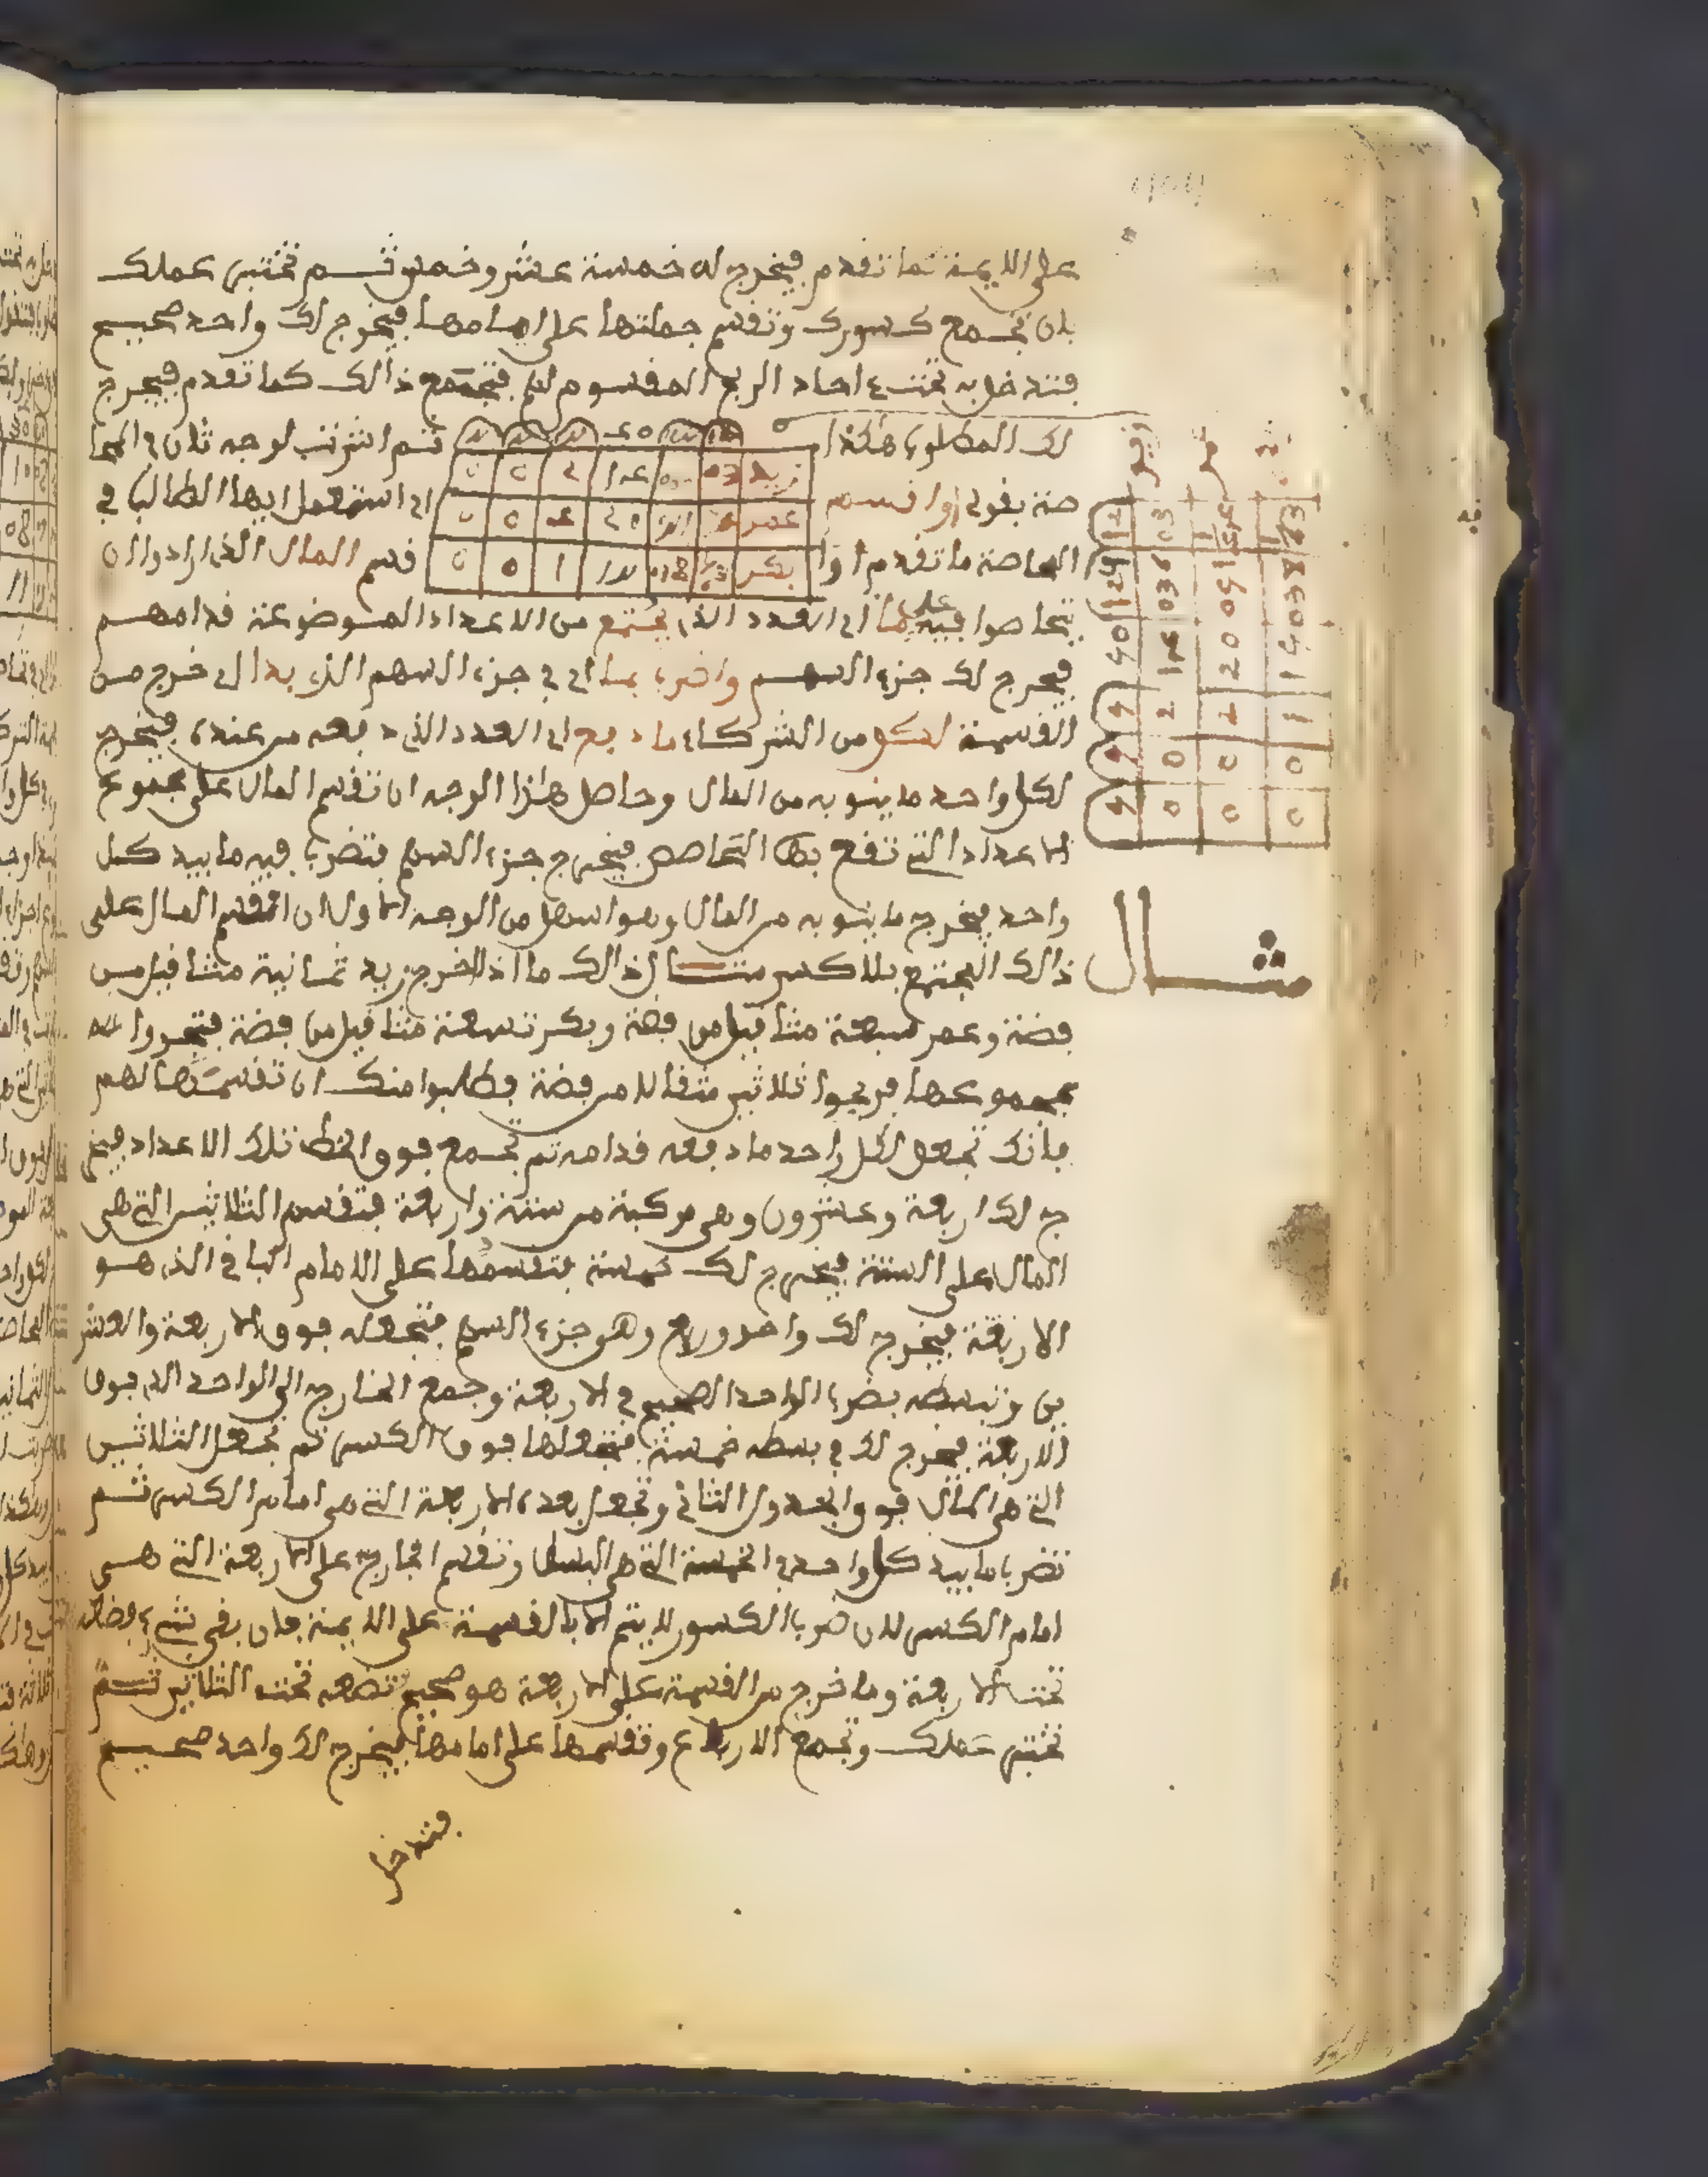 على الايمة كما تقدم فيخرج له خمسة عشر وخمس ثم تختبر عملك
بان تجمع كسورك وتقسم جملتها على امامها فيخرج لك واحد صحيح
فتدخل به تحت احاد الربح المقسوم لهم فتجمع ذالك كما تقدم فيخرج
لك المطلوب هكذا
ثم اشرت لوجه ثان في المحا
صة بقولي اوا قسم
اي استعمل ايها الطالب في
المحاصة ما تقدم اوا
قسم المال الذي ارادوا ان
زيد
عمر
بكر
يتحاصوا فيه على ما اي العدد الذي يجتمع من الاعداد الموضوعة قدامهم
فيخرج لك جزء السهم واضرب بما اي في جزء السهم الذي بدا اي خرج من
القسمة لكل من الشركاء ما دفع اي العدد الذي دفعه من عنده فيخرج
لكل واحد ما ينوبه من المال وحاصل هذا الوجه ان تقسم المال على مجموع
الاعداد التي تقع بها التحاصص فيخرج جزء السهم فتضرب فيه ما بيد كل
واحد فيخرج ما ينوبه من المال وهو اسهل من الوجه الاول ان انقسم المال على
ذالك المجتمع بلا كسر مثال ذالك ما اذا اخرج زيد ثمانية مثاقيل من
مثال
فضة وعمر سبعة مثاقيل من فضة وبكر تسعة مثاقيل من فضة فتجروا
بمجموعها فربحوا ثلاثين مثقالا من فضة فطلبوا منك ان تقسمها لهم
فانك تجعل لكل واحد ما دفعه قدامه ثم تجمع فوق الخط تلك الاعداد فيخر
ج لك اربعة وعشرون وهي مركبة من ستة واربعة فتقسم الثلاثين التي هي
المال على الستة فيخرج لك خمسة فتقسمها على الامام الباقي الذي هو
الاربعة فيخرج لك واحد وربع وهو جزء السهم فتجعله فوق الاربعة والعشر
ين وتبسطه بضرب الواحد الصحيح في الاربعة وجمع الخارج الى الواحد الذي فوق
الاربعة فيخرج لك في بسطه خمسة فتجعلها فوق الكسر ثم تجعل الثلاثين
التي هي المال فوق الجدول الثاني وتجعل بعده الاربعة التي هي امام الكسر ثم
تضرب ما بيد كل واحد في الخمسة التي هي البسط وتقسم الخارج على الاربعة التي هي
امام الكسر لان ضرب الكسور لا يتم الا بالقسمة على الايمة فان بقي شيء فضعه
تحت الاربعة وما خرج من القسمة على الاربعة هو صحيح تضعه تحت الثلاثين ثم
تختبر عملك وتجمع الارباع وتقسمها على امامها فيخرج لك واحد صحيح
فتدخل